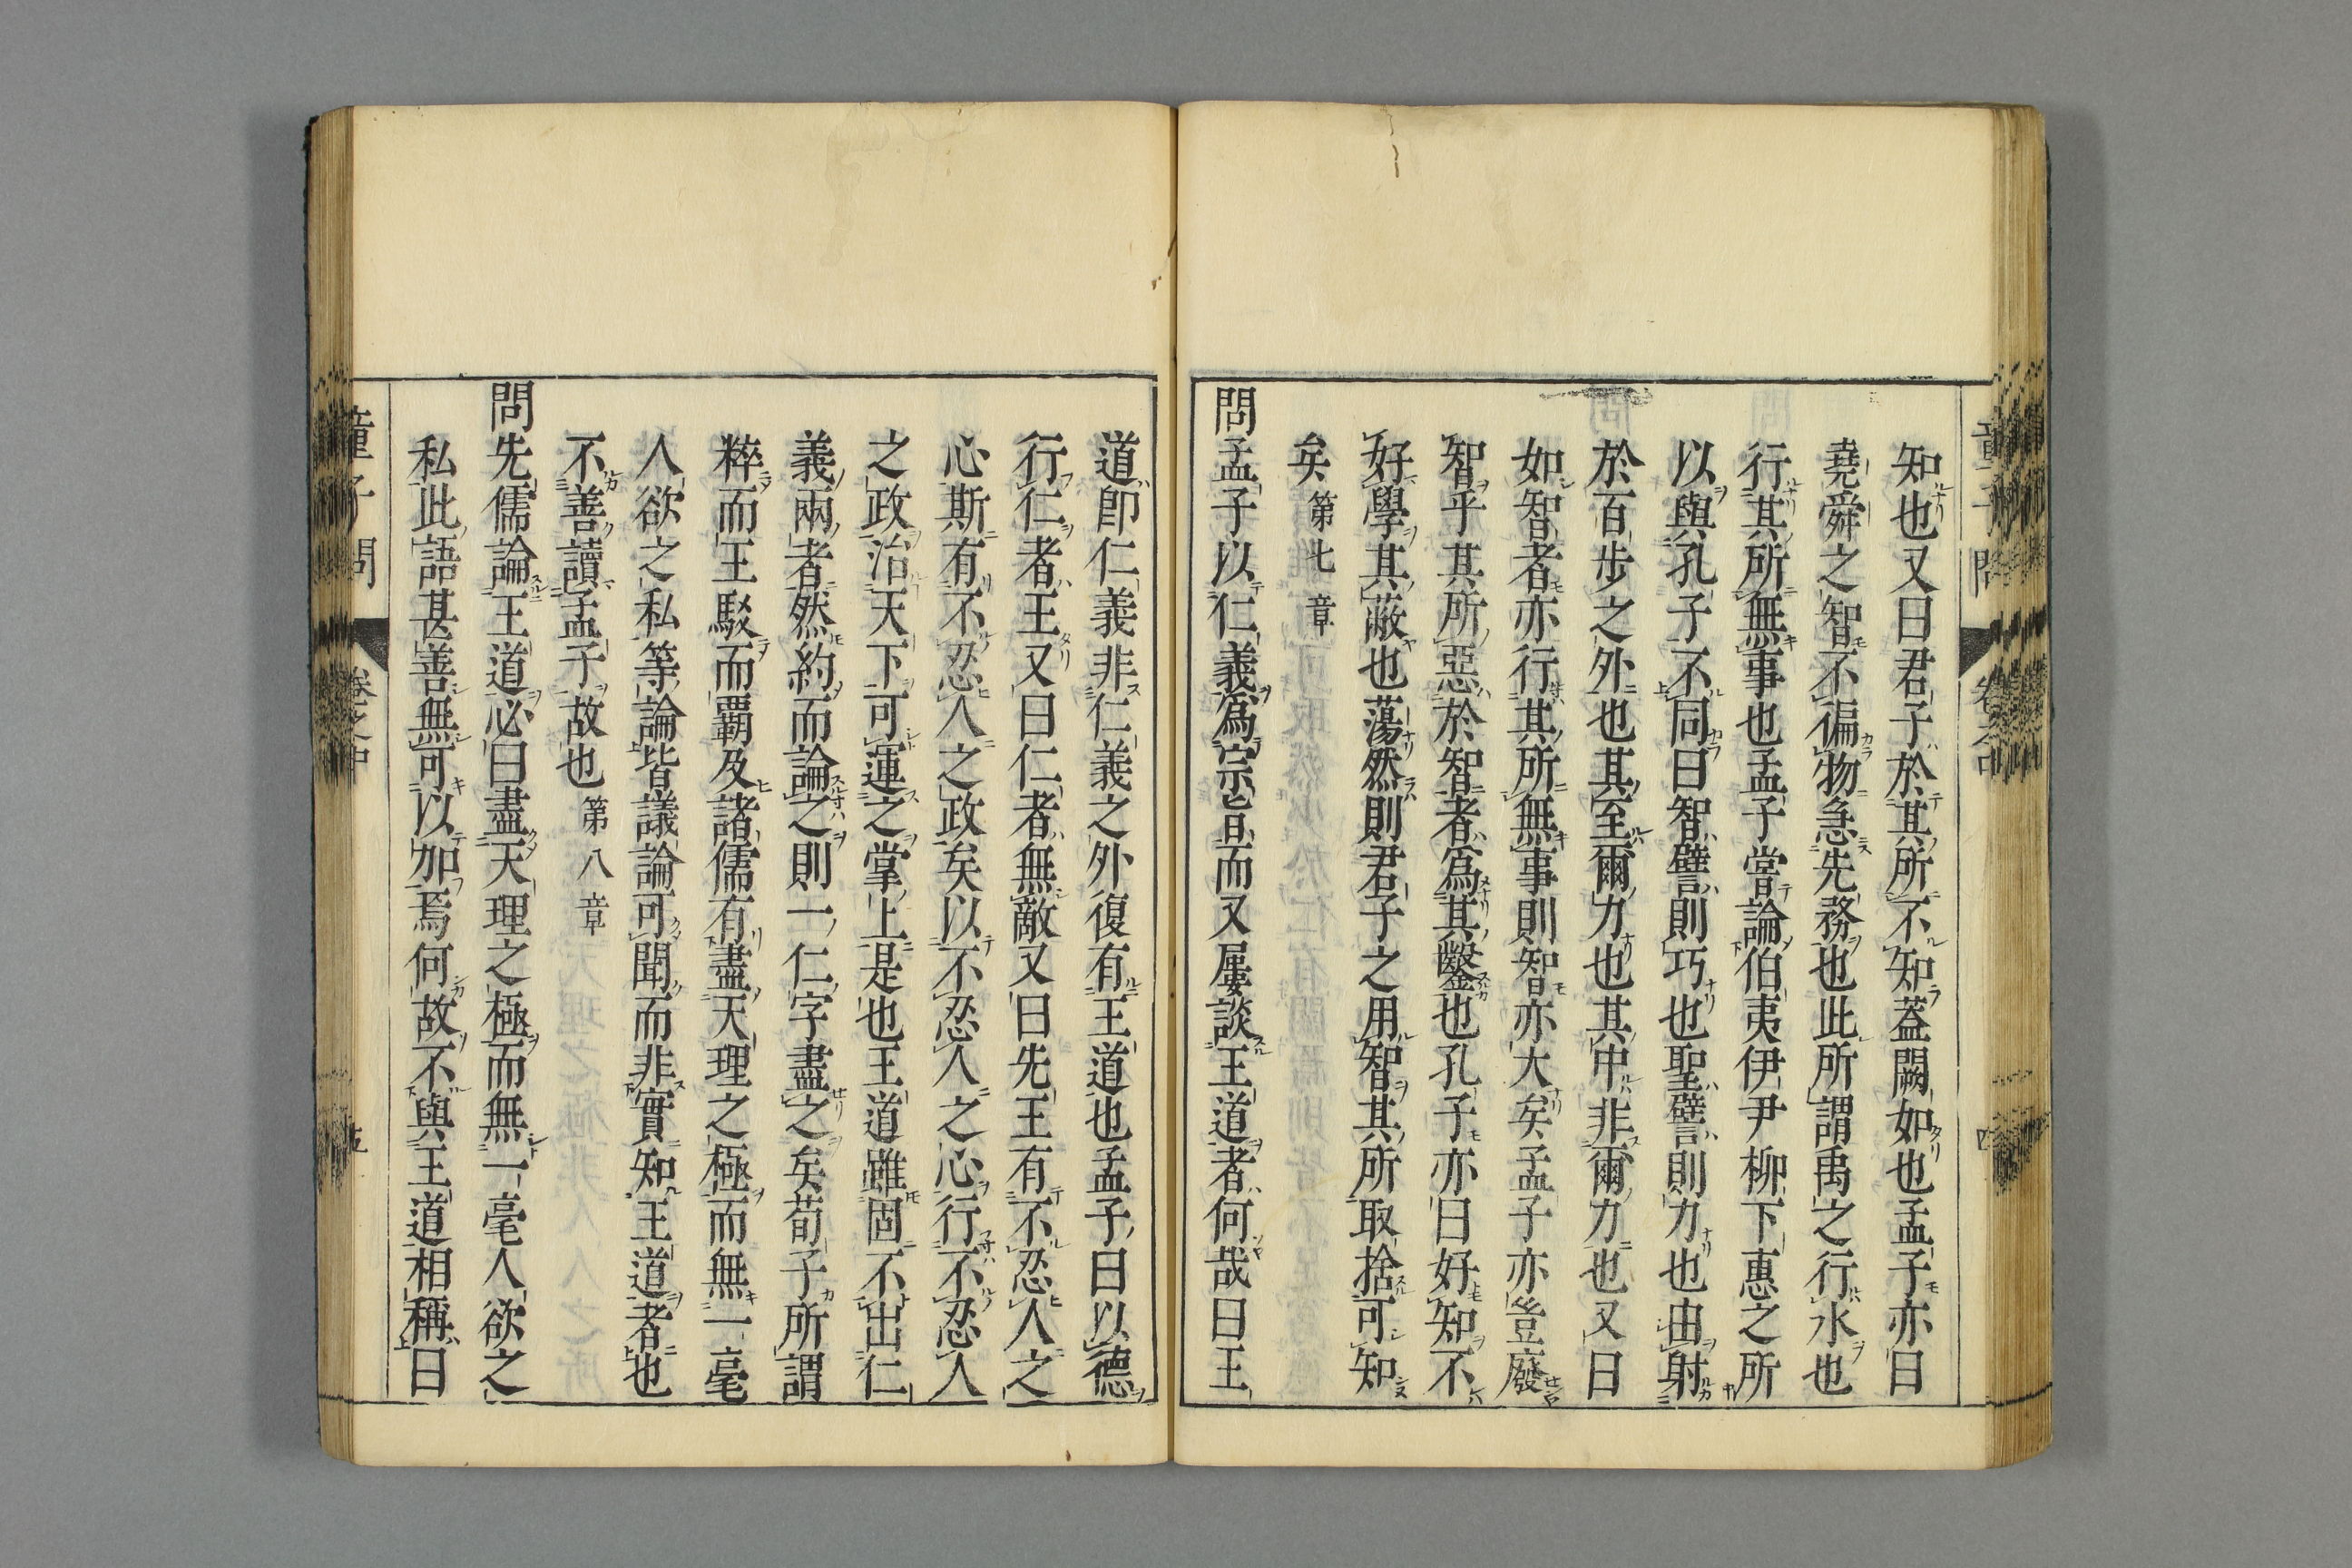 知也又曰君子於其所不知蓋闕如也孟子亦曰
堯舜之智不徧物急先務也此所謂禹之行水也
行其所無事也孟子甞論伯夷伊尹柳下惠之所
以與孔子不同曰智譬則巧也聖譬則力也由射
於百步之外也其至爾力也其中非爾力也又曰
如智者亦行其所無事則智亦大矣孟子亦豈廢
智乎其所惡於智者爲其鑿也孔子亦曰好知不
好學其蔽也蕩然則君子之用智其所取捨可知
矣 第七章
問孟子以仁義爲宗旨而又屢談王道者何哉曰王
道卽仁義非仁義之外復有王道也孟子曰以德
行仁者王又曰仁者無敵又曰先王有不忍人之
心斯有不忍人之政矣以不忍人之心行不忍人
之政治天下可運之掌上是也王道雖固不出仁
義兩者然約而論之則一仁字盡之矣荀子所謂
粹而王駁而覇及諸儒有盡天理之極而無一毫
人欲之私等論皆議論可聞而非實知王道者也
不善讀孟子故也 第八章
問先儒論王道必曰盡天理之極而無一毫人欲之
私此語甚善無可以加焉何故不與王道相稱曰
童子問 卷之中